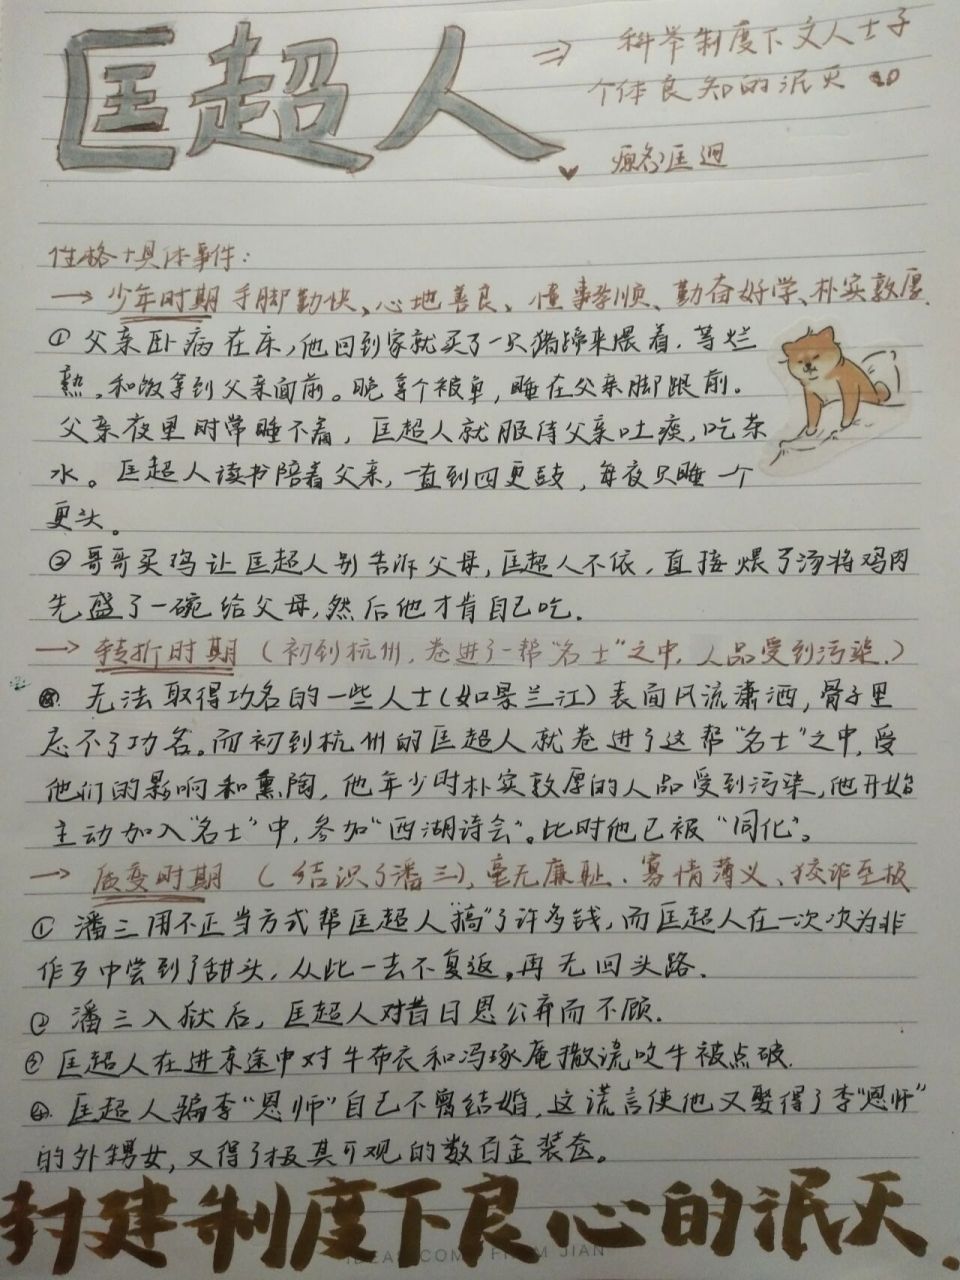 匡超人
⇒ 科举制度下文人士子
个体良知的泯灭
原名匡迥
性格+具体事件:
→ 少年时期 手脚勤快、心地善良、懂事孝顺、勤奋好学、朴实敦厚.
① 父亲卧病在床,他回到家就买了一只猪蹄来煨着,等烂
熟.和饭拿到父亲面前。晚拿个被单,睡在父亲脚跟前.
父亲夜里时常睡不着,匡超人就服侍父亲吐痰,吃茶
水。匡超人读书陪着父亲,一直到四更鼓,每夜只睡一个
更头。
② 哥哥买鸡让匡超人别告诉父母,匡超人不依,直接煨了汤将鸡肉
先盛了一碗给父母,然后他才肯自己吃.
→ 转折时期 (初到杭州,卷进了一帮"名士"之中,人品受到污染.)
无法取得功名的一些人士(如景兰江)表面风流潇洒,骨子里
忘不了功名。而初到杭州的匡超人就卷进了这帮"名士"之中,受
他们的影响和熏陶,他年少时朴实敦厚的人品受到污染,他开始
主动加入"名士"中,参加"西湖诗会"。此时他已被"同化"。
→ 质变时期 (结识了潘三),毫无廉耻、寡情薄义、狡诈至极
① 潘三用不正当方式帮匡超人"搞"了许多钱,而匡超人在一次次为非
作歹中尝到了甜头,从此一去不复返,再无回头路.
② 潘三入狱后,匡超人对昔日恩公弃而不顾.
③ 匡超人在进京途中对牛布衣和冯琢庵撒谎吹牛被点破.
④ 匡超人骗李"恩师"自己不曾结婚,这谎言使他又娶得了李"恩师"
的外甥女,又得了极其可观的数百金装奁。
封建制度下良心的泯灭.
IDEAS COME FROM JIAN